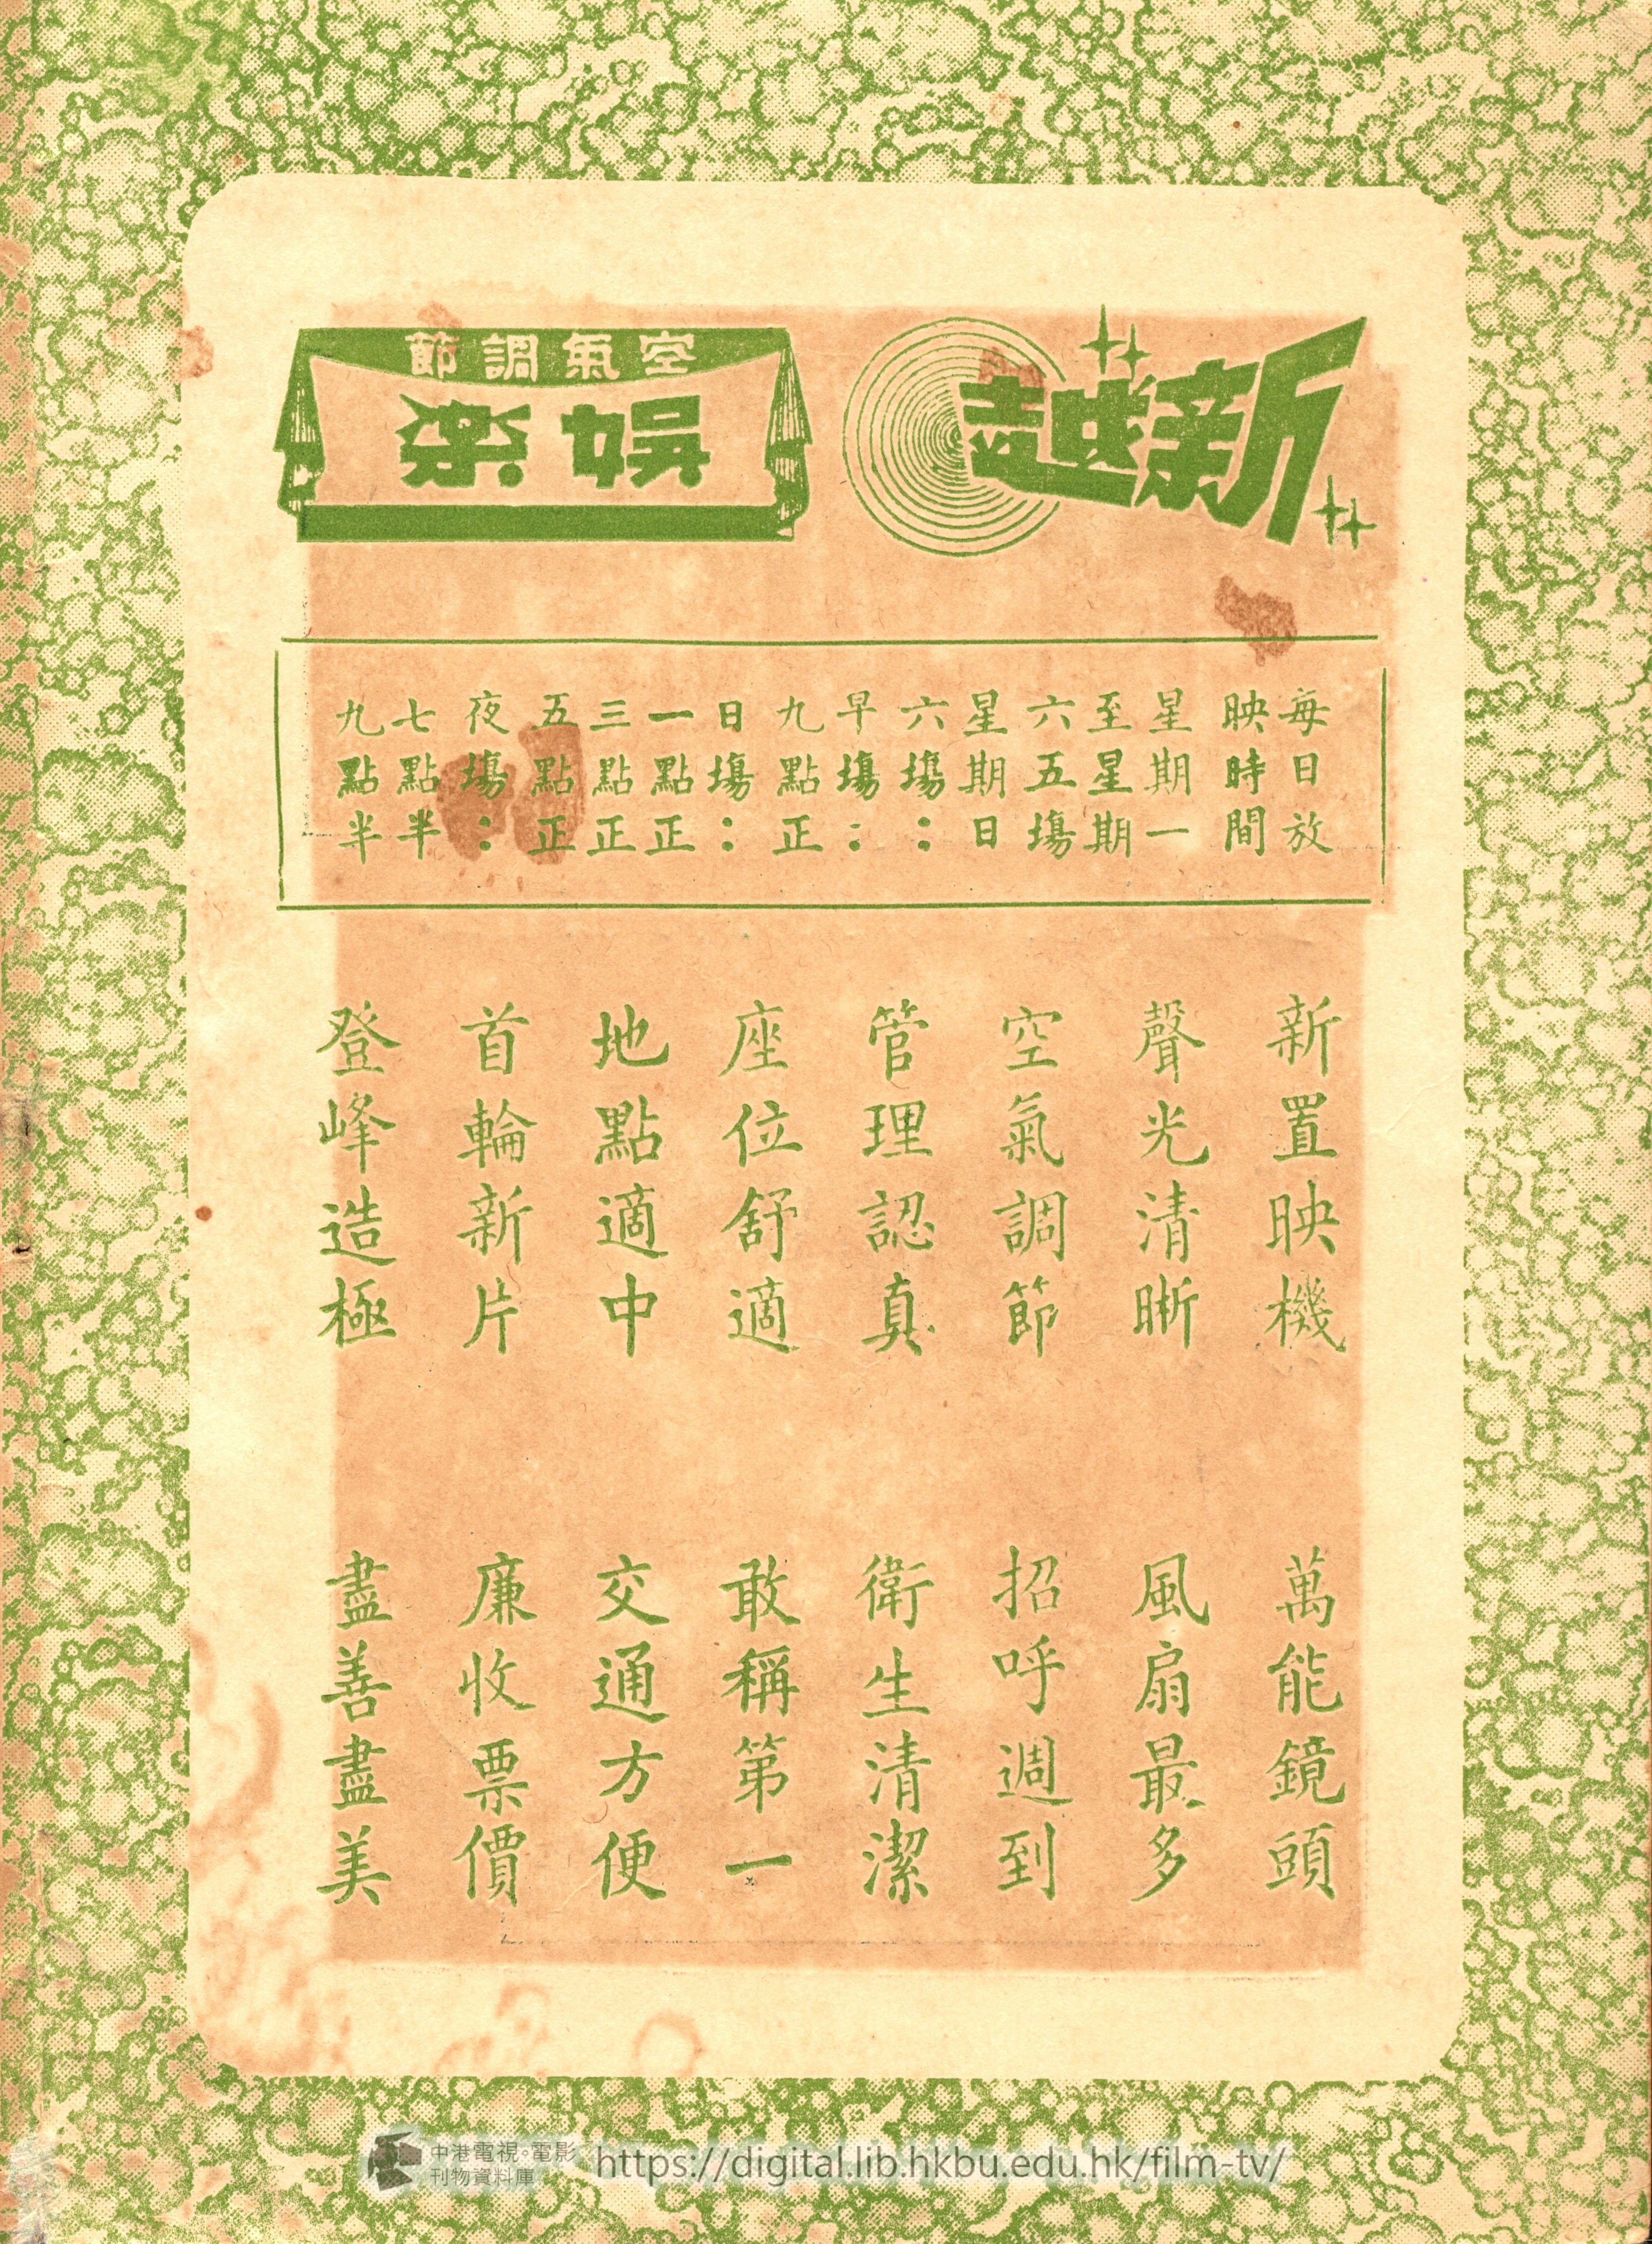 新越
空氣調節
娛楽
每日放
映時間
星期一
至星期
六五塲
星期日
六塲：
早塲：
九點正
日塲：
一點正
三點正
五點正
夜塲：
七點半
九點半
新置映機 萬能鏡頭
聲光清晰 風扇最多
空氣調節 招呼週到
管理認真 衛生清潔
座位舒適 敢稱第一
地點適中 交通方便
首輪新片 廉收票價
登峰造極 盡善盡美
中港電視。電影
刊物資料庫
https://digital.lib.hkbu.edu.hk/film-tv/